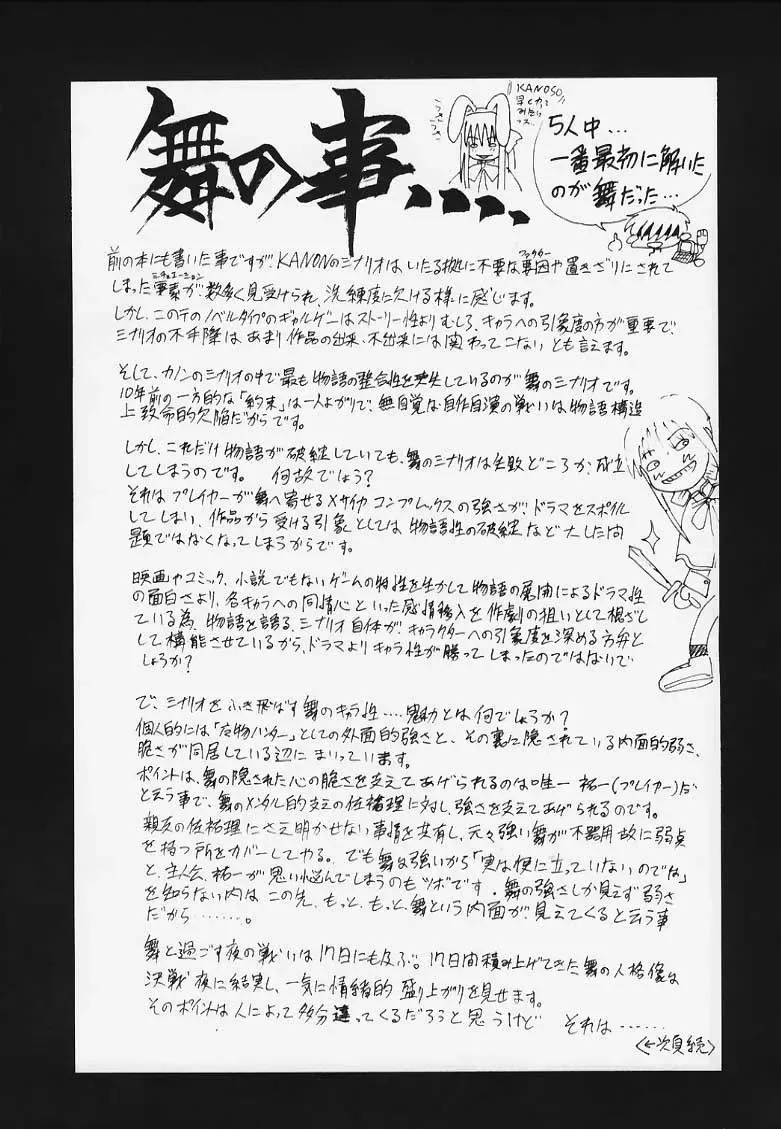 舞の事、、、、
うさうさ
KANOSO
早くやって
みたい
っス…
5人中…
一番最初に解いた
のが舞だった…
前の本にも書いた事ですが、KANONのシナリオは、いたる処に不要な要因や置きざりにされて
ファクター
しまった要素が、数多く見受けられ、洗練度に欠ける様に感じます。
シチュエーション
しかし、この手のノベルタイプのギャルゲーはストーリー性よりむしろ、キャラへの印象度の方が重要で、
シナリオの不手際は、あまり作品の出来、不出来には関わってこないとも言えます。
そして、カノンのシナリオの中で最も物語の整合性を喪失しているのが舞のシナリオです。
10年前の一方的な「約束」は一人よがりで、無自覚な自作自演の戦いは物語構造
上致命的欠陥だからです。
しかし、これだけ物語が破綻していても、舞のシナリオは失敗どころか、成立
してしまうのです。 何故でしょう?
それはプレイヤーが舞へ寄せるメサイヤコンプレックスの強さが、ドラマをスポイル
してしまい、作品から受ける印象としては、物語性の破綻など大した問
題ではなくなってしまうからです。
映画やコミック、小説でもないゲームの特性を生かして物語の展開によるドラマ性
の面白さより、各キャラへの同情心といった感情移入を作劇の狙いとして根ざし
ている為、物語を語る、シナリオ自体が、キャラクターへの印象度を深める方弁と
して構能させているから、ドラマよりキャラ性が勝ってしまったのではないで
しょうか?
で、シナリオをふき飛ばす舞のキャラ性…魅力とは何でしょうか?
個人的には「魔物ハンター」としての外面的強さと、その裏に隠されている内面的弱さ、
脆さが同居している辺にまいっています。
ポイントは、舞の隠された心の脆さを支えてあげられるのは唯一祐一(プレイヤー)だ
と云う事で、舞のメンタル的支えの佐祐理に対し、強さを支えてあげられるのです。
親友の佐祐理にさえ明かせない事情を共有し、元々強い舞が不器用故に弱点
を持つ所をカバーしてやる。でも舞は強いから「実は役に立っていないのでは」
と、主人公、祐一が思い悩んでしまうのもツボです。舞の強さしか見えず弱さ
を知らない内はこの先、もっと、もっと、舞という内面が見えてくると云う事
だから……。
舞と過ごす夜の戦いは17日にも及ぶ。17日間積み上げてきた舞の人格像は
決戦夜に結実し、一気に情緒的盛り上がりを見せます。
そのポイントは人によって多分違ってくるだろうと思うけど それは……
〈←次頁続〉